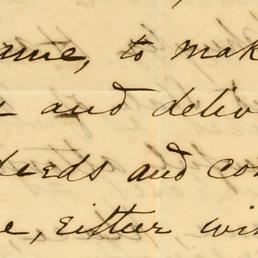 ame, to mak
and deliv
deeds and con
e, either wi